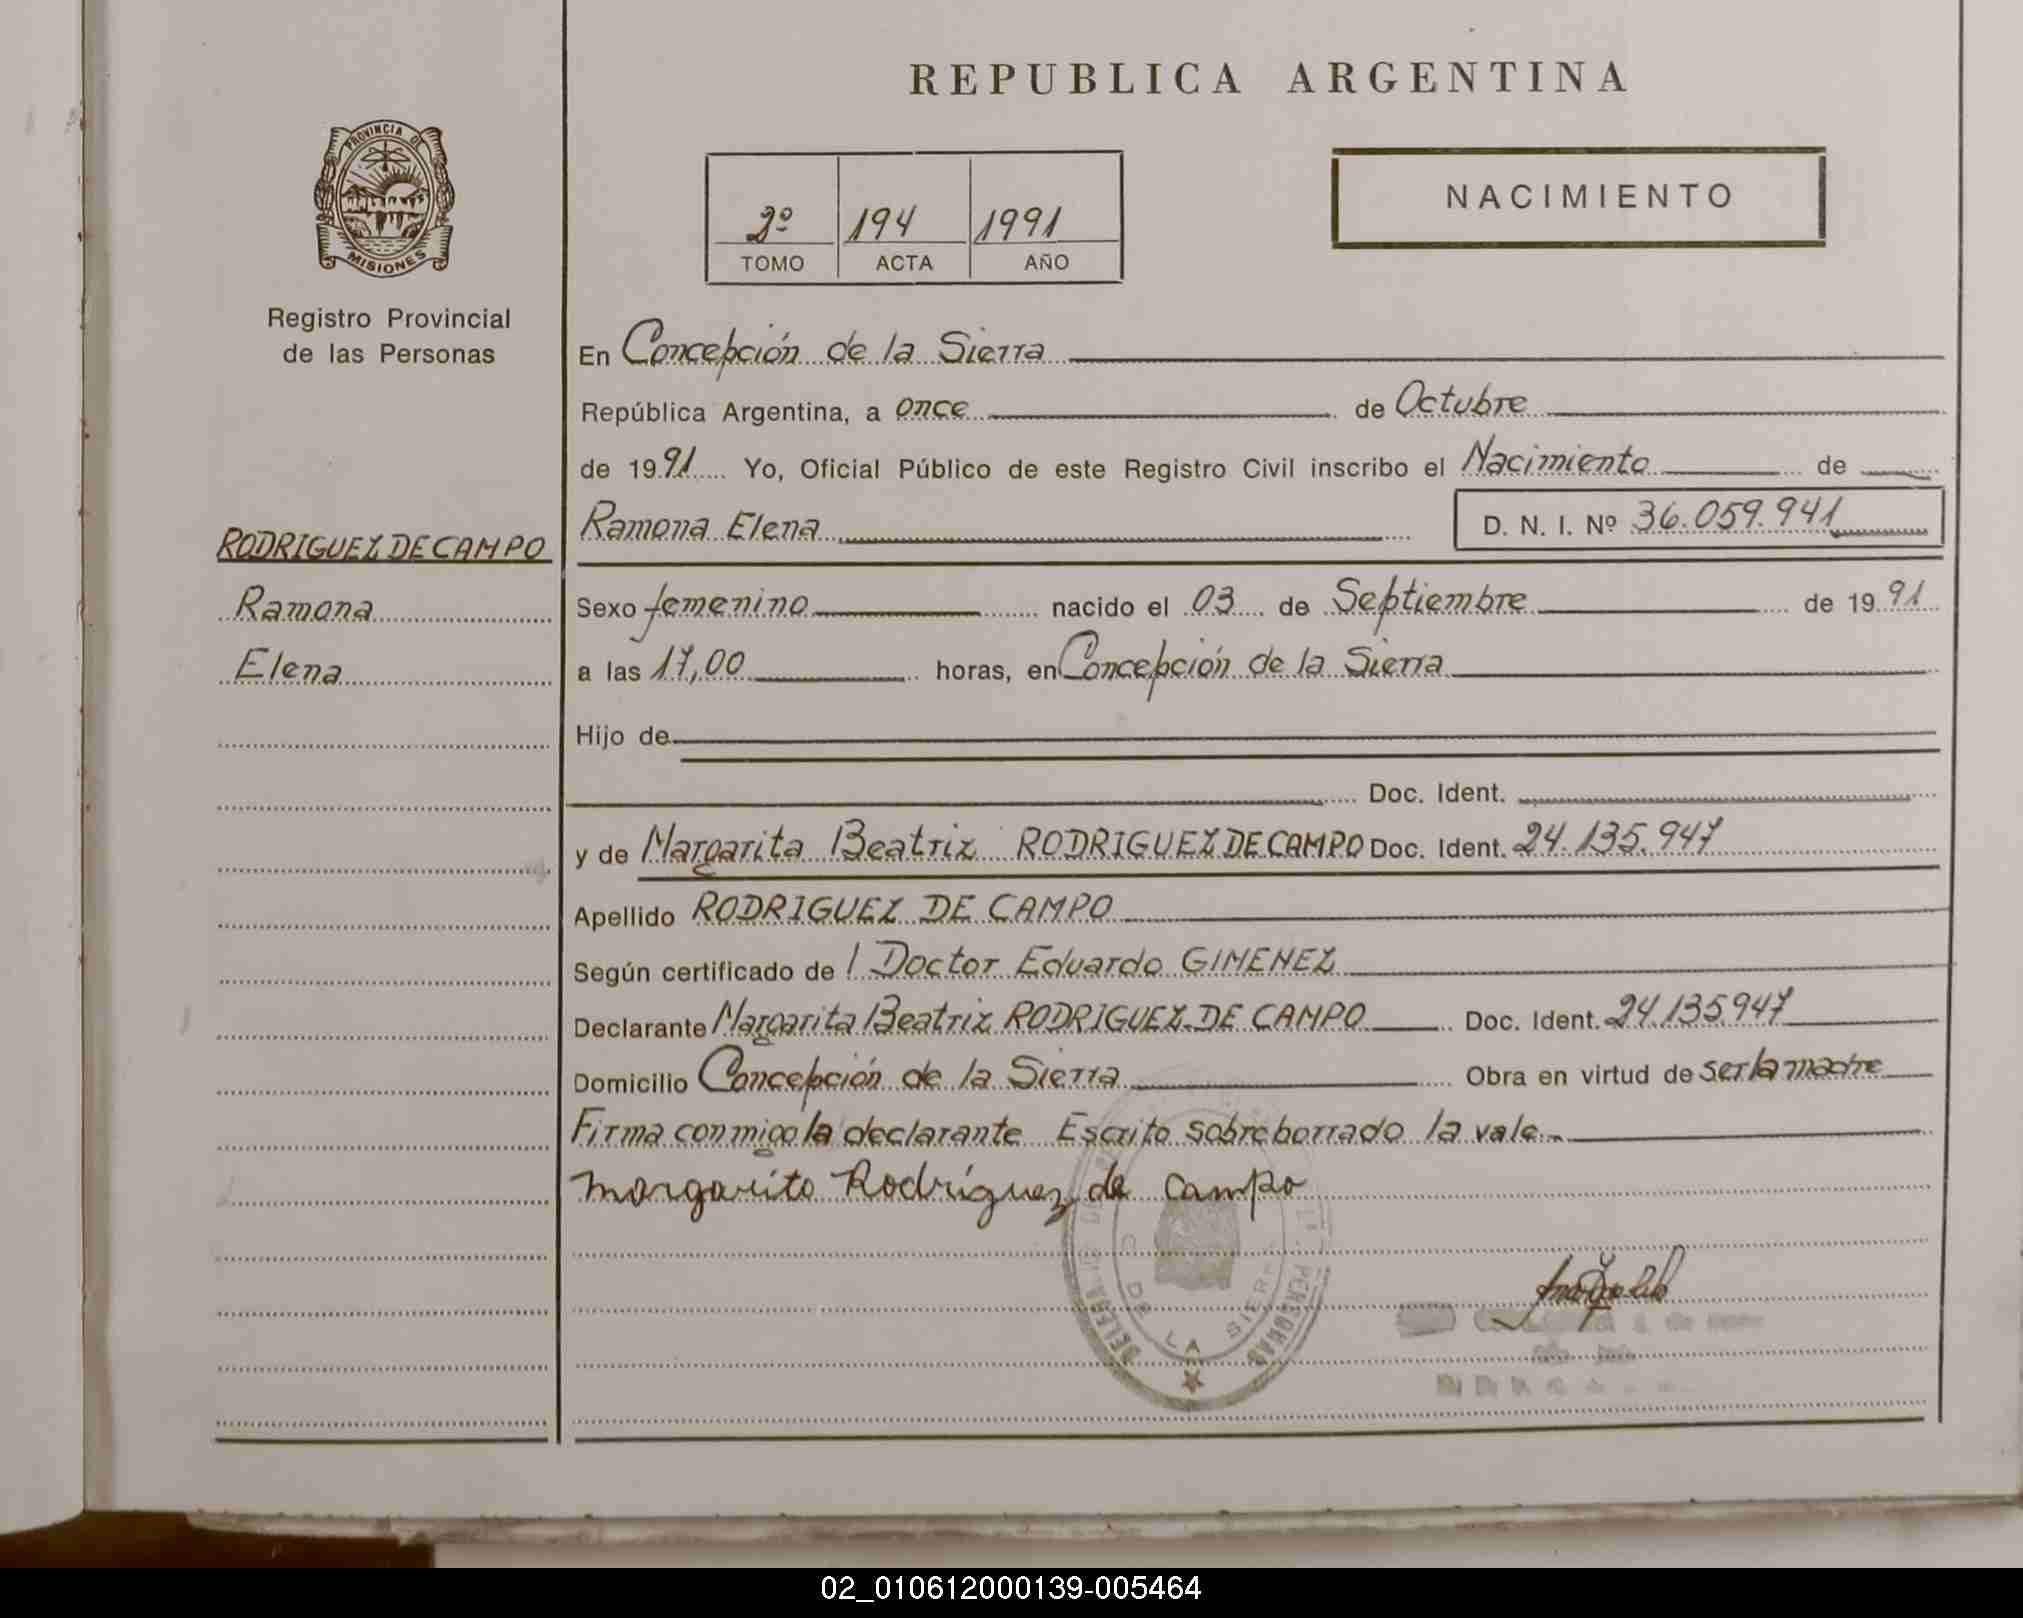 REPUBLICA ARGENTINA
PROVINCIA DE
MISIONES
Registro Provincial
de las Personas
2º 194 1991
TOMO ACTA AÑO
NACIMIENTO
En Concepción de la Sierra
República Argentina, a once de Octubre
de 1991 Yo, Oficial Público de este Registro Civil inscribo el Nacimiento de
Ramona Elena D. N. I. Nº 36.059.941
RODRIGUEZ DE CAMPO
Ramona
Elena
Sexo femenino nacido el 03 de Septiembre de 1991
a las 17,00 horas, en Concepción de la Sierra
Hijo de
Doc. Ident.
y de Margarita Beatriz RODRIGUEZ DE CAMPO Doc. Ident. 24.135.947
Apellido RODRIGUEZ DE CAMPO
Según certificado de l Doctor Eduardo GIMENEZ
Declarante Margarita Beatriz RODRIGUEZ DE CAMPO Doc. Ident. 24.135.947
Domicilio Concepción de la Sierra Obra en virtud de ser la madre
Firma conmigo la declarante Escrito sobre borrado la vale.
Margarita Rodríguez de Campo
DE LA SIERRA
PERSONAS
02_010612000139-005464